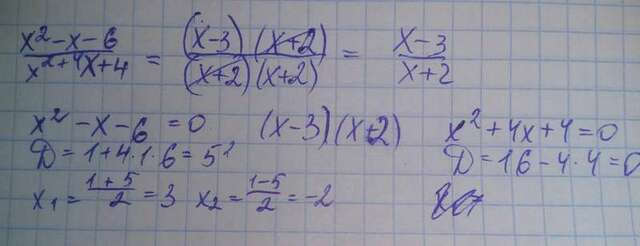 x²-x-6 / x²+4x+4 = (x-3)(x+2) / (x+2)(x+2) = x-3 / x+2
x²-x-6=0 (x-3)(x+2) x²+4x+4=0
D=1+4·1·6=5² D=16-4·4=0
x₁=(1+5)/2=3 x₂=(1-5)/2=-2